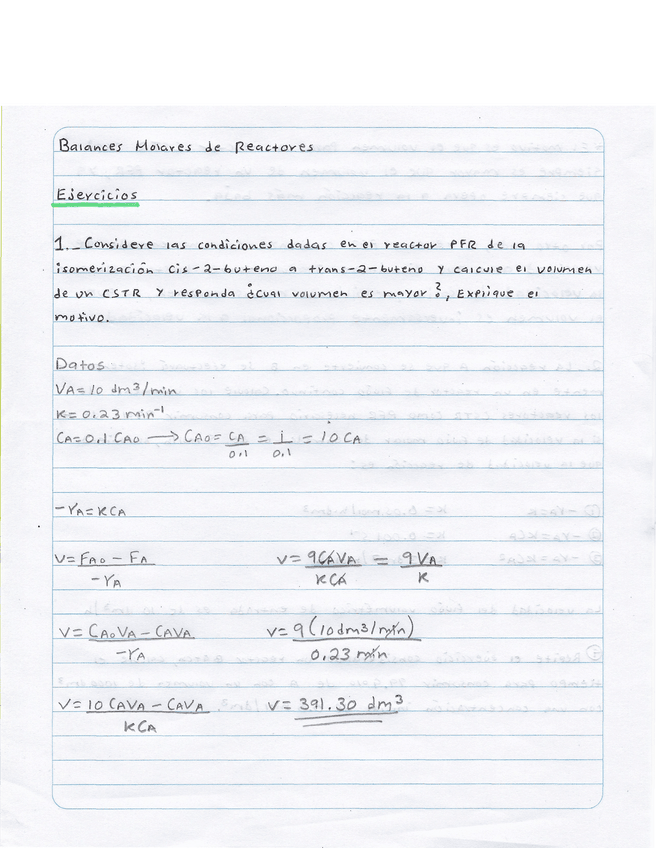 Balances Molares de Reactores
Ejercicios
1._ Considere las condiciones dadas en el reactor PFR de la
isomerización cis-2-buteno a trans-2-buteno y calcule el volumen
de un CSTR y responda ¿cual volumen es mayor?, Explique el
motivo.
Datos
VA = 10 dm³/min
K = 0.23 min⁻¹
CA = 0.1 CA0 → CA0 = CA/0.1 = 1/0.1 = 10 CA
-rA = KCA
V = FA0 - FA / -rA
V = 9CAVA / KCA = 9VA / K
V = CA0VA - CAVA / -rA
V = 9(10dm³/min) / 0.23 min
V = 10CAVA - CAVA / KCA
V = 391.30 dm³